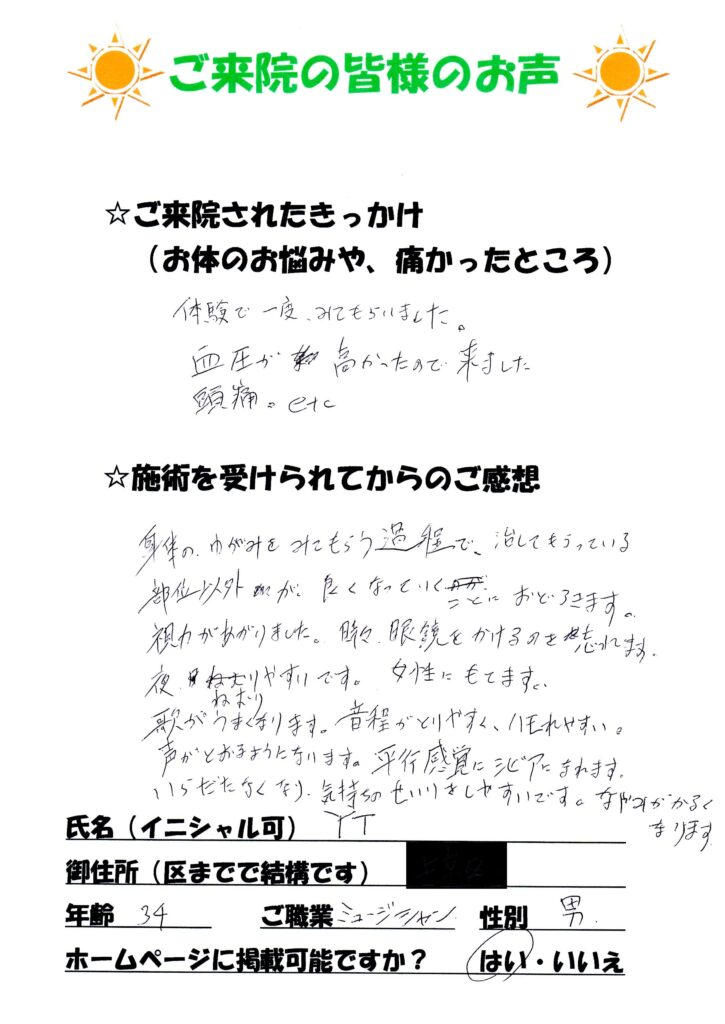 ご来院の皆様のお声
☆ご来院されたきっかけ
（お体のお悩みや、痛かったところ）
体験で一度、みてもらいました。
血圧が高かったので来ました
頭痛。etc
☆施術を受けられてからのご感想
身体の、ゆがみをみてもらう過程で、治してもらっている
部位以外が、良くなっていくことにおどろきます。
視力があがりました。時々、眼鏡をかけるのを忘れます。
夜、ねむりやすいです。女性にもてます。
歌がうまくなります。音程がとりやすく、ハモれやすい。
声がとおるようになります。平行感覚にシビアになれます。
いらだたなくなり、気持ちのせいりをしやすいです。なやみがかるく
なります
氏名（イニシャル可） YT
御住所（区までで結構です）
年齢 34 ご職業 ミュージシャン 性別 男.
ホームページに掲載可能ですか？ はい・いいえ